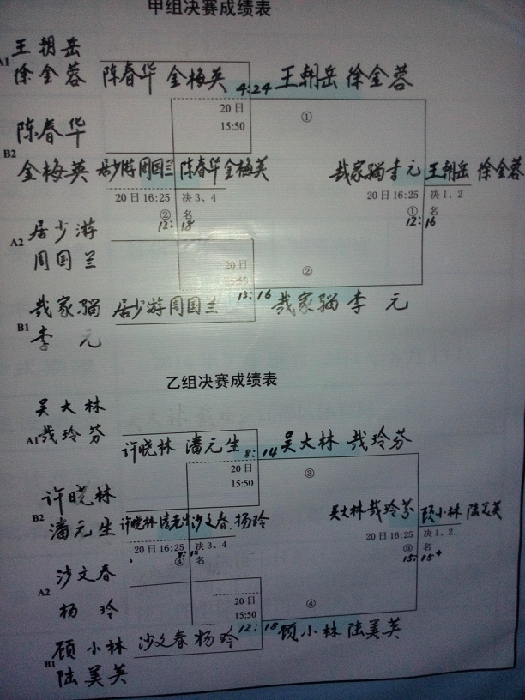 甲组决赛成绩表
王朝岳
A1
徐金蓉 陈春华 金梅英 4:24 王朝岳 徐金蓉
20日
15:50
①
陈春华
B2
金梅英 居少游 周国兰 陈春华 金梅英 李元 王朝岳 徐金蓉
20日 16:25 决3、4 20日 16:25 决1、2
② 名 ① 名
12:18 12:16
A2 居少游
周国兰
20日
15:50
②
居少游 周国兰 13:16 李元
B1
李元
乙组决赛成绩表
吴大林
A1 玲芬
许晓林 潘元生 8:14 吴大林 玲芬
20日
15:50
③
许晓林
B2
潘元生 许晓林 潘元生 沙文春 杨玲 吴大林 玲芬 顾小林 陆美英
20日 16:25 决3、4 20日 16:25 决1、2
④ 名 ③ 名
15:15+
沙文春
A2
杨玲
20日
15:50
④
顾小林 沙文春 杨玲 12:18 顾小林 陆美英
B1
陆美英